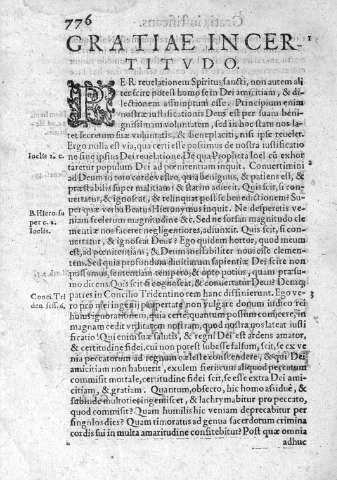 776
GRATIAE INCER-
TITVDO.
PER reuelationem Spiritus sancti, non autem ali
ter scire potest homo se in Dei amicitiam, & di-
lectionem assumptum esse. Principium enim
nostræ iustificationis Deus est per suam beni-
gnissimam voluntatem, sed in hoc statu nos la-
tet secretum suæ voluntatis, & beneplaciti, nisi ipse reuelet.
Ergo nulla est via, qua certi esse possimus de nostra iustificatio
ne sine ipsius Dei reuelatione. De qua Propheta Ioel cũ exhor
Ioelis 2. c.
taretur populum Dei ad pœnitentiam inquit. Conuertimini
ad Deum in toto corde vestro, quia benignus, & patiens est, &
præstabilis super malitiam: & statim adiecit. Quis scit, si con
uertatur, & ignoscat, & relinquat post se benedictionem? Su-
per quæ verba Beatus Hieronymus inquit. Ne desperetis ve-
B. Hiero. su
per c. 2.
Ioelis.
niam scelerum magnitudine &c. Sed ne forsan magnitudo cle
mentiæ nos faceret negligentiores, adiunxit. Quis scit, si con-
uertatur, & ignoscat Deus? Ego quidem hortor, quod meum
est, ad pœnitentiam, & Deum ineffabiliter noui esse clemen-
tem. Sed quis profunda diuitiarum sapientiæ Dei scire non
possimus, sententiam tempero, & opto potius, quam præsu-
mo dicens. Quis scit si ignoscat, & conuertatur Deus?
patres in Concilio Tridentino rem hanc diffinierunt. Ego ve
Conci. Tri
den. sess. 6.
ro pro
rius ignorationem, quia certe, quantum possum conijcere, in
magnam cedit vtilitatem nostram, quod nos lateat iusti
ficatio! Qui enim suæ salutis, & regni Dei est ardens amator,
& certitudine fidei, cui non potest subesse falsum, scit, se ex ve
nia peccatorum ad regnum cæleste conscendere, & qui Dei
amicitiam non habuerit, exulem fieri: cum aliquod peccatum
commisit mortale, certitudine fidei scit, se esse extra Dei ami-
citiam, & gratiam. Quantum, obsecro, hic homo assiduè, &
subinde multoties ingemiscet, & lachrymabitur pro peccato,
quod commisit? Quam humilis hic veniam deprecabitur per
singulos dies? Quam timoratus ad genua sacerdotum crimina
cordis sui in multa amaritudine confitebitur? Post quæ omnia
adhuc